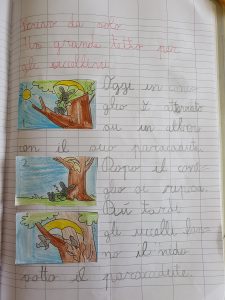 Scrivo da solo
Un grande tetto per
gli uccellini
Oggi un coni
glio è atterrato
su un albero
con il suo paracadute.
Dopo il coni
glio si riposa.
Più tardi
gli uccelli han
no il nido
sotto il paracadute.